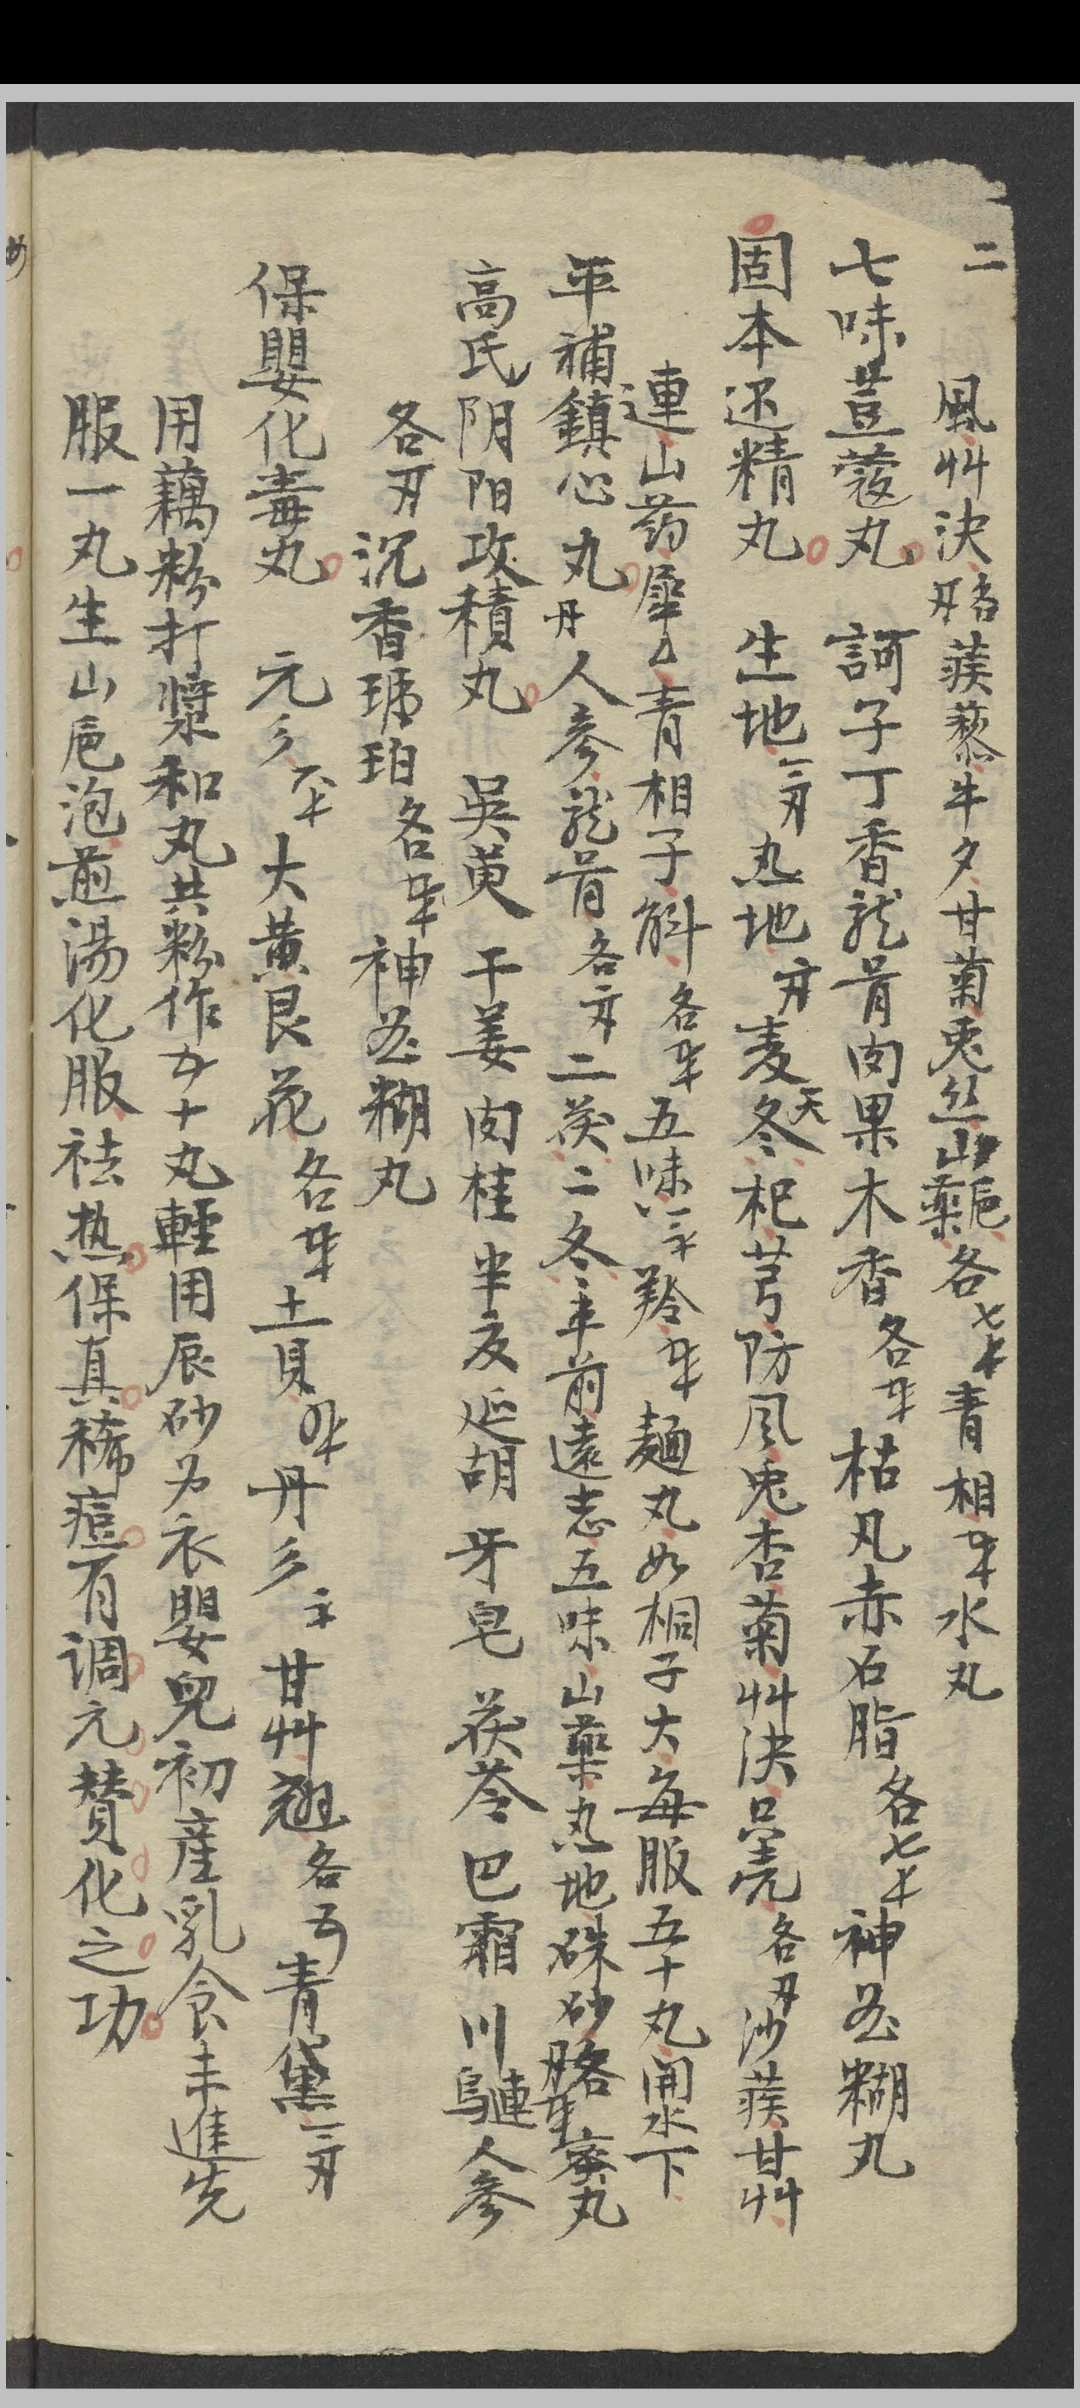 二
風艸決各蒺藜牛夕甘菊兎丝山巵藥各七 青相 水丸
七味荳蔻丸 訶子丁香龙骨肉果木香各 枯凡赤石脂各七 神 糊丸
固本还精丸 生地 热地 麦天冬杞芎防风兎杏菊艸決只壳各 沙蒺甘艸
連山药犀 青相子斛各 五味 羚 麺丸如桐子大每服五十丸開水下
平補鎮心丸 人參龙骨各 二茯二冬車前遠志五味山藥热地硃砂各 蜜丸
高氏阴阳攻積丸 吳萸 干姜 肉桂 半夏 延胡 牙皂 茯苓 巴霜 川烏連 人參
各 沉香琥珀各 神 糊丸
保嬰化毒丸 元 大黄艮花各 土貝 丹 甘艸翘各 青黛
用藕粉打漿和丸共粉作 十丸輕用辰砂为衣嬰兒初產乳食未進先
服一丸生山巵泡煎湯化服祛热保真稀痘有调元赞化之功